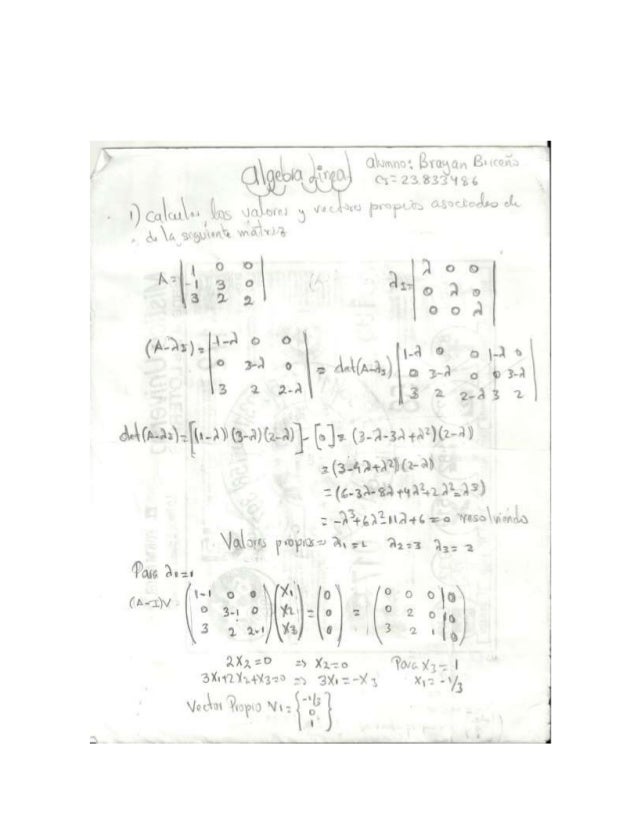 algebra lineal alumno: Brayan Briceño
CI= 23.833486
1) calcular los valores y vectores propios asociados de
de la siguiente matriz
A = | 1 0 0 | λI = | λ 0 0 |
| -1 3 0 | | 0 λ 0 |
| 3 2 2 | | 0 0 λ |
(A-λI) = | 1-λ 0 0 | = det(A-λI) | 1-λ 0 0 | 1-λ 0 |
| 0 3-λ 0 | | 0 3-λ 0 | 0 3-λ |
| 3 2 2-λ | | 3 2 2-λ | 3 2 |
det(A-λI) = [(1-λ)(3-λ)(2-λ)] - [0] = (3-λ-3λ+λ²)(2-λ)
= (3-4λ+λ²)(2-λ)
= (6-3λ-8λ+4λ²+2λ²-λ³)
= -λ³+6λ²-11λ+6=0 resolviendo
Valores propios= λ1=1 λ2=3 λ3=2
Para λ1=1
(A-I)V = ( 1-1 0 0 ) ( X1 ) = ( 0 ) = ( 0 0 0 | 0 )
( 0 3-1 0 ) ( X2 ) ( 0 ) ( 0 2 0 | 0 )
( 3 2 2-1 ) ( X3 ) ( 0 ) ( 3 2 1 | 0 )
2X2=0 => X2=0 Para X3=1
3X1+2X2+X3=0 => 3X1=-X3 X1=-1/3
Vector Propio V1 = { -1/3
0
1 }